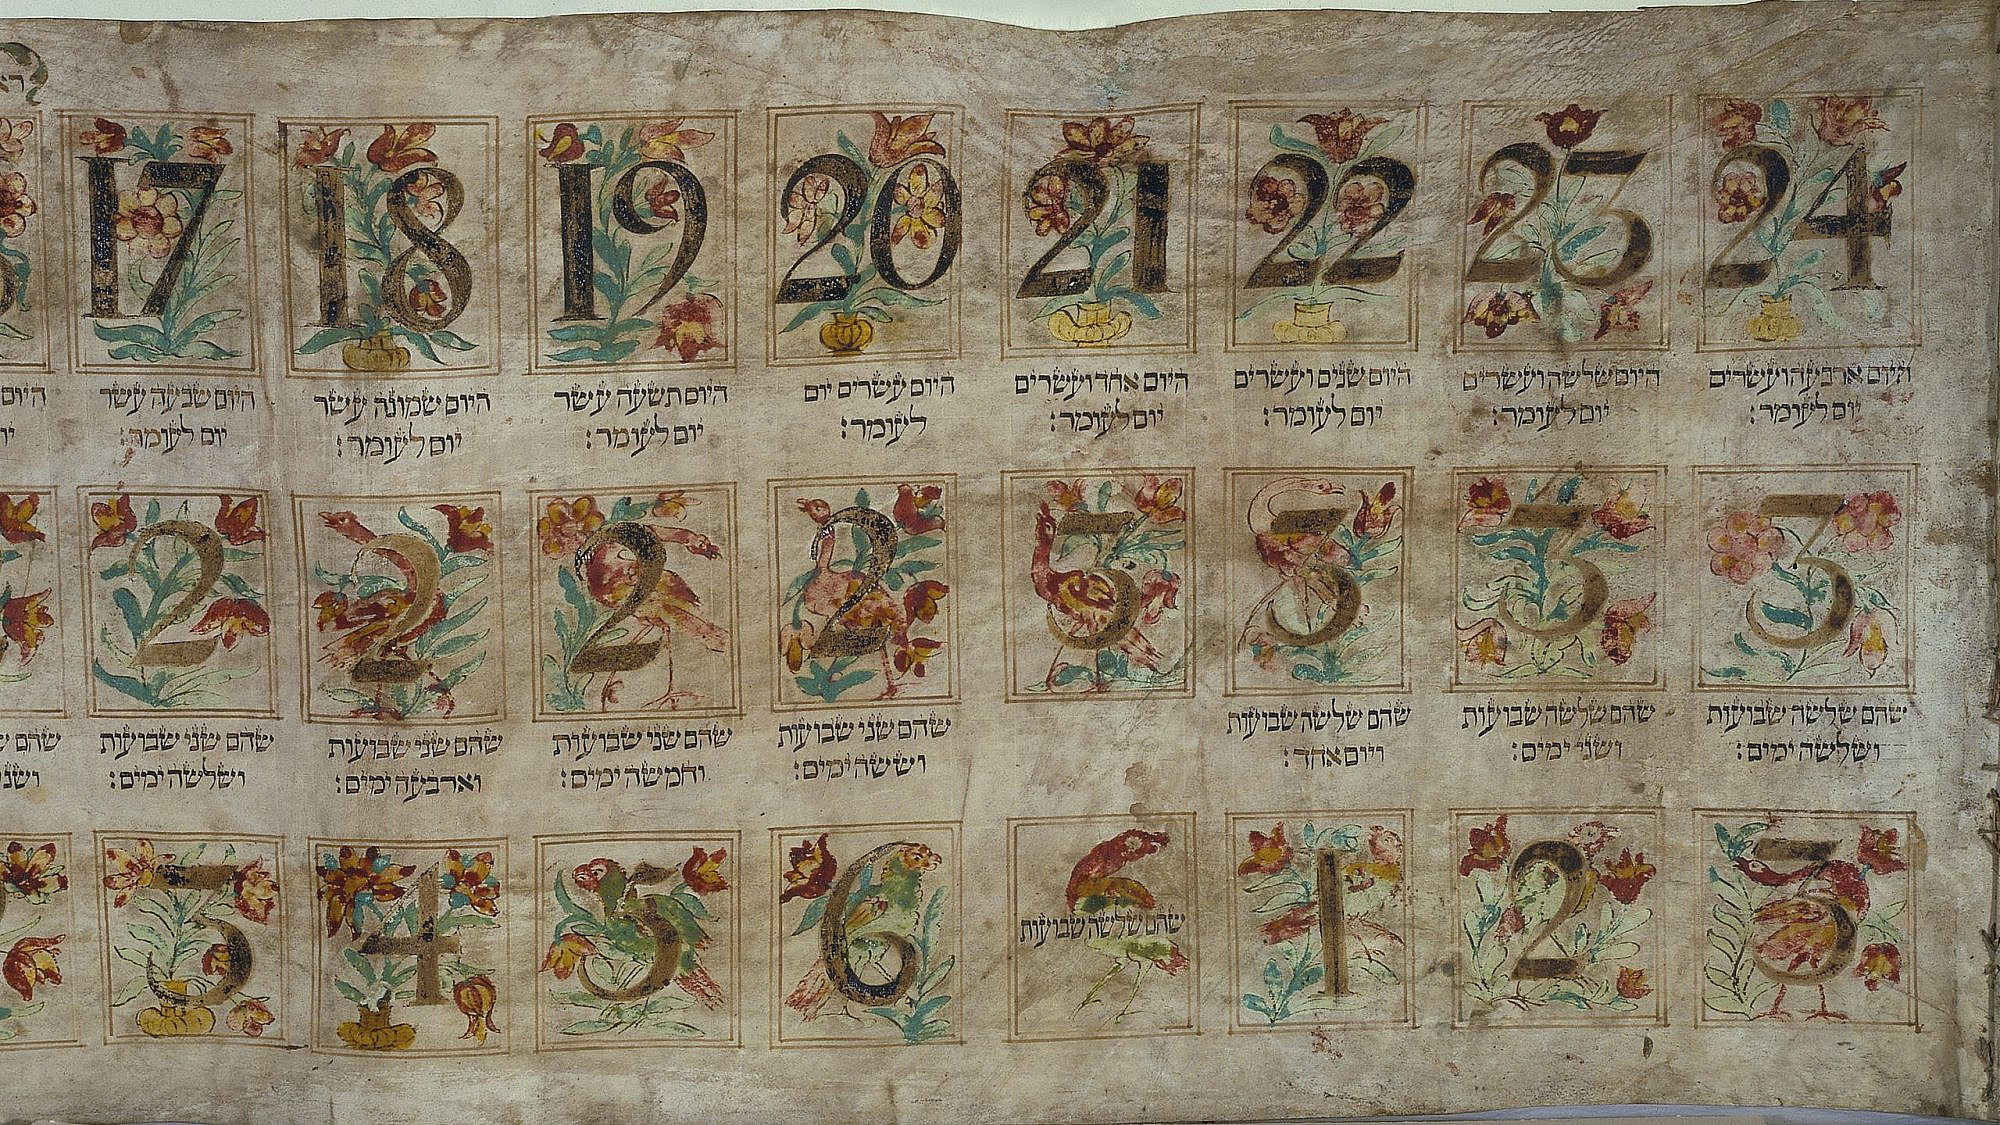 17
היום שבעה עשר
יום לעומר:
18
היום שמונה עשר
יום לעומר:
19
היום תשעה עשר
יום לעומר:
20
היום עשרים יום
לעומר:
21
היום אחד ועשרים
יום לעומר:
22
היום שנים ועשרים
יום לעומר:
23
היום שלשה ועשרים
יום לעומר:
24
היום ארבעה ועשרים
יום לעומר:
2
שהם שני שבועות
ושלשה ימים:
2
שהם שני שבועות
וארבעה ימים:
2
שהם שני שבועות
וחמשה ימים:
2
שהם שני שבועות
וששה ימים:
3
3
שהם שלשה שבועות
ויום אחד:
3
שהם שלשה שבועות
ושני ימים:
3
שהם שלשה שבועות
ושלשה ימים:
3
4
5
6
שהם שלשה שבועות
1
2
3